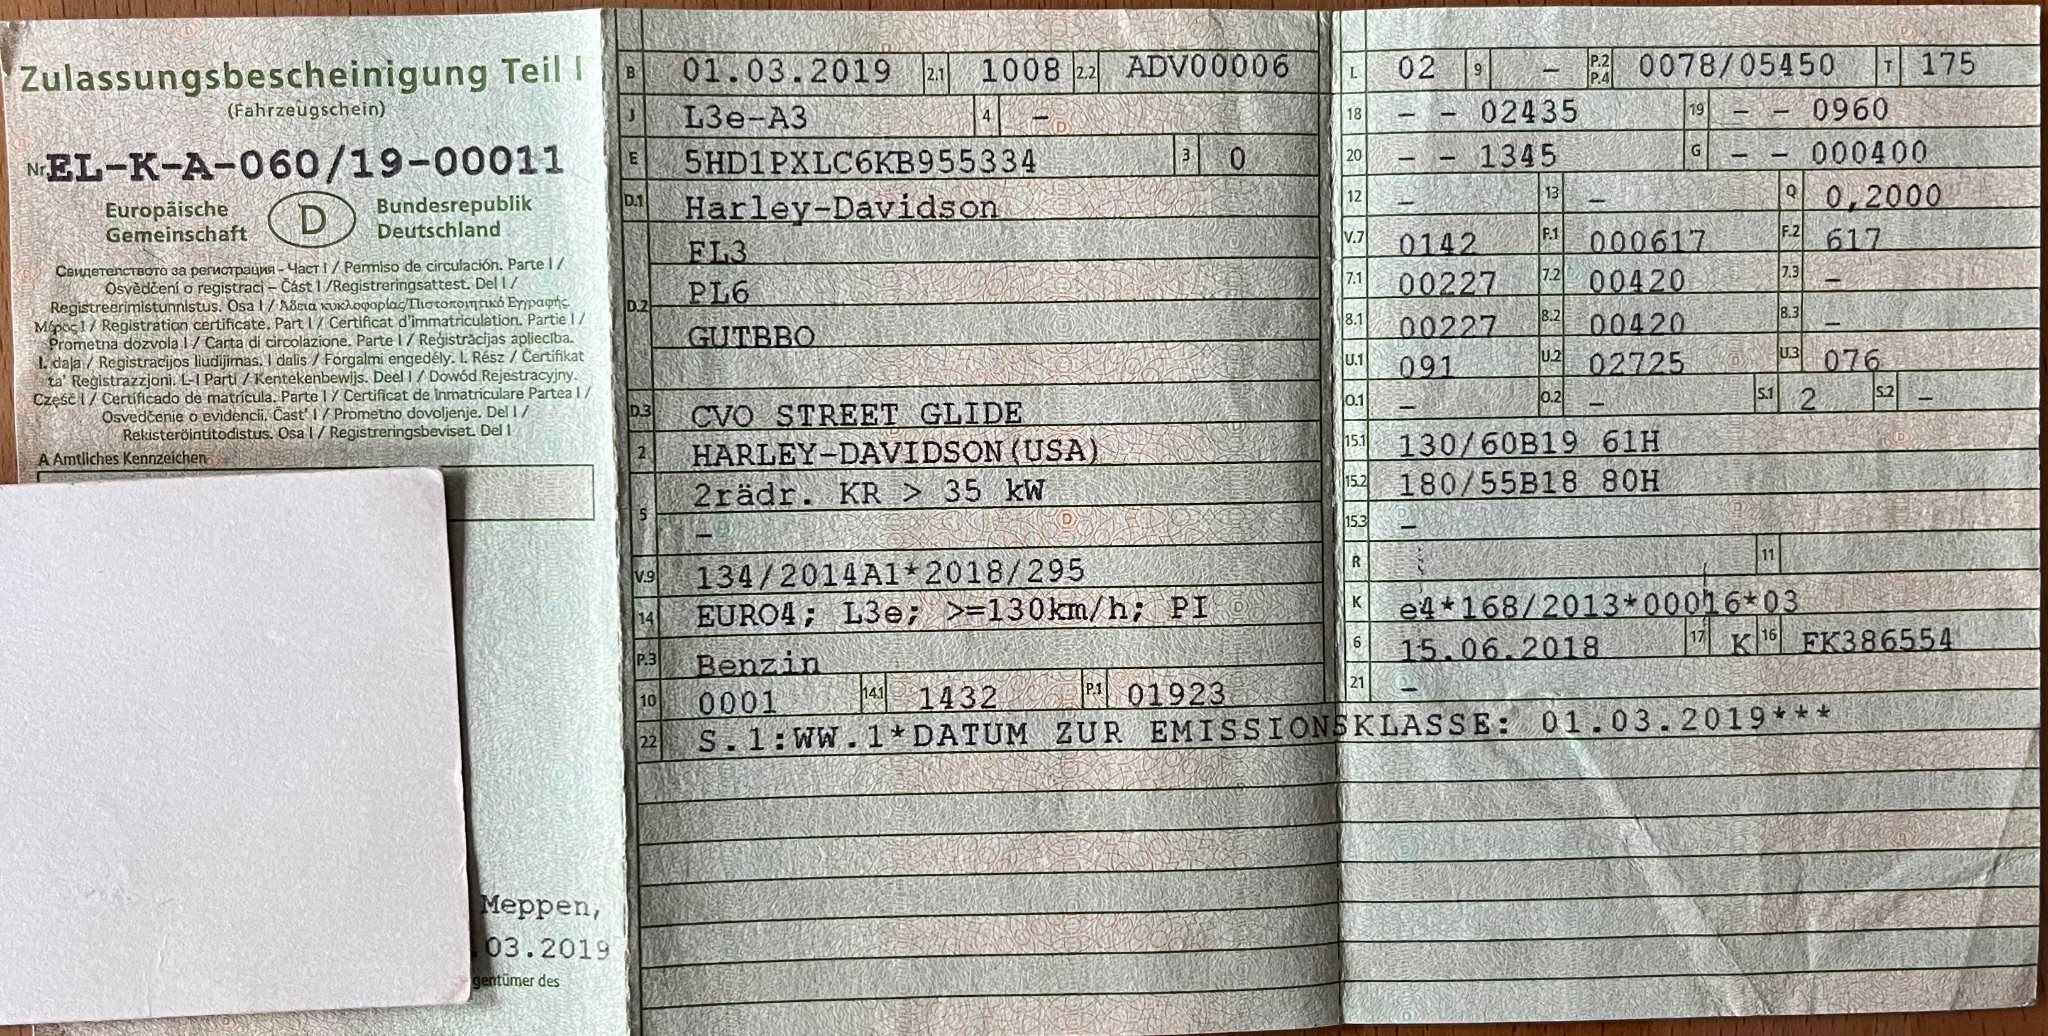 Zulassungsbescheinigung Teil I
(Fahrzeugschein)
Nr. EL-K-A-060/19-00011
Europäische Gemeinschaft
D
Bundesrepublik Deutschland
Свидетелството за регистрация - Част I / Permiso de circulación. Parte I /
Osvědčení o registraci – Část I / Registreringsattest. Del I /
Registreerimistunnistus. Osa I / Άδεια κυκλοφορίας/Πιστοποιητικό Εγγραφής
Μέρος I / Registration certificate. Part I / Certificat d'immatriculation. Partie I /
Prometna dozvola I / Carta di circolazione. Parte I / Reģistrācijas apliecība.
I. daļa / Registracijos liudijimas. I dalis / Forgalmi engedély. I. Rész / Ċertifikat
ta' Reġistrazzjoni. L-I Parti / Kentekenbewijs. Deel I / Dowód Rejestracyjny.
Część I / Certificado de matrícula. Parte I / Certificat de înmatriculare Partea I /
Osvedčenie o evidencii. Časť I / Prometno dovoljenje. Del I /
Rekisteröintitodistus. Osa I / Registreringsbeviset. Del I
A Amtliches Kennzeichen
Meppen,
.03.2019
gentümer des
B 01.03.2019 2.1 1008 2.2 ADV00006
J L3e-A3 4 –
E 5HD1PXLC6KB955334 3 0
D.1 Harley-Davidson
D.2 FL3
PL6
GUTBBO
D.3 CVO STREET GLIDE
2 HARLEY-DAVIDSON(USA)
5 2rädr. KR > 35 kW
–
V.9 134/2014AI*2018/295
14 EURO4; L3e; >=130km/h; PI
P.3 Benzin
10 0001 14.1 1432 P.1 01923
22 S.1:WW.1*DATUM ZUR EMISSIONSKLASSE: 01.03.2019***
L 02 9 – P.2 P.4 0078/05450 T 175
18 – – 02435 19 – – 0960
20 – – 1345 G – – 000400
12 – 13 – Q 0,2000
V.7 0142 F.1 000617 F.2 617
7.1 00227 7.2 00420 7.3 –
8.1 00227 8.2 00420 8.3 –
U.1 091 U.2 02725 U.3 076
O.1 – O.2 – S.1 2 S.2 –
15.1 130/60B19 61H
15.2 180/55B18 80H
15.3 –
R 11
K e4*168/2013*00016*03
6 15.06.2018 17 K 16 FK386554
21 –